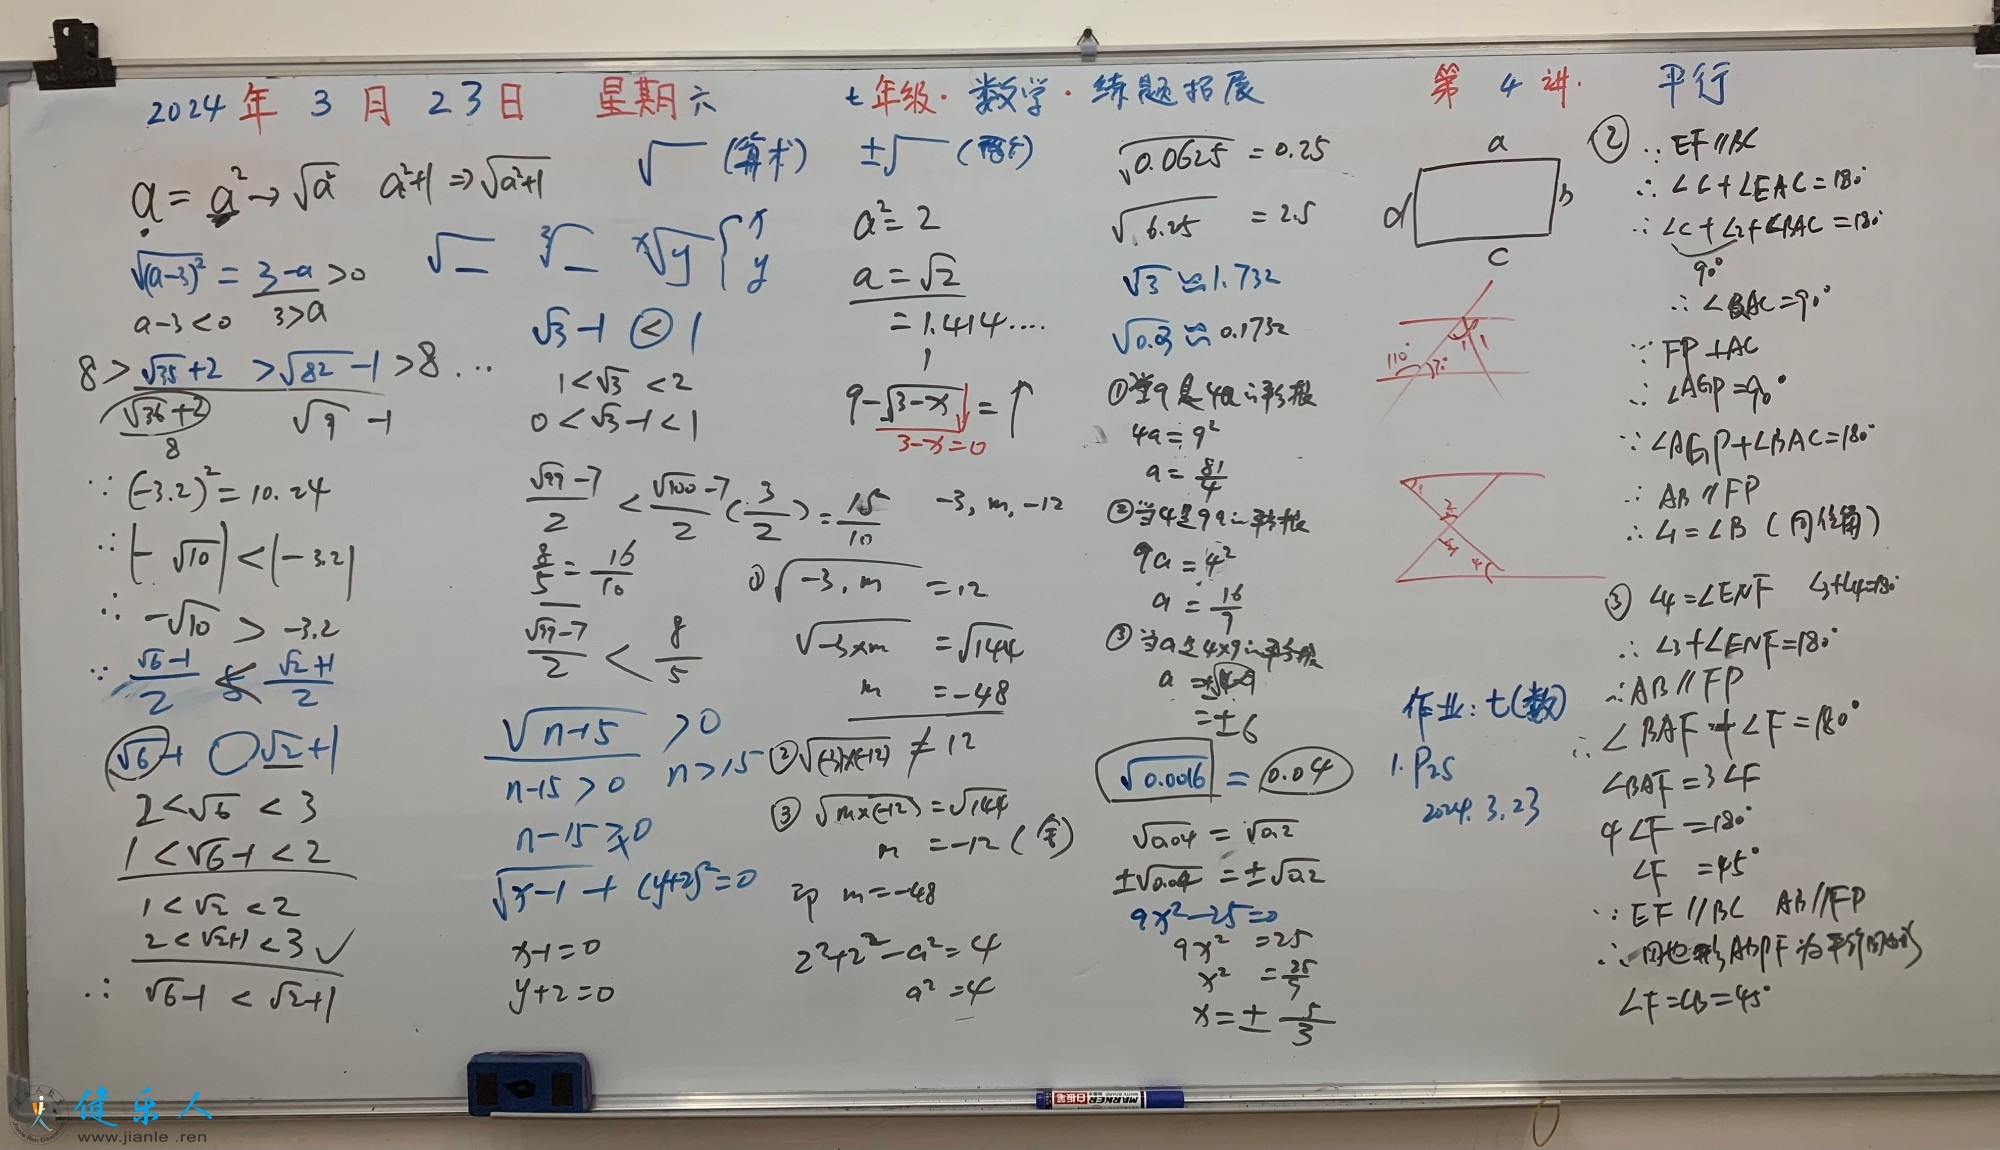 2024年3月23日 星期六 七年级·数学·练题拓展 第4讲· 平行
a = a² → √a² a²+1 ⇒ √a²+1
√(a-3)² = 3-a > 0
a-3<0 3>a
8 > √35+2 > √82-1 > 8 ...
√36+2 √9 -1
8
∵ (-3.2)² = 10.24
∴ |-√10| < |-3.2|
∴ -√10 > -3.2
∵ √6-1/2 < √2+1/2
√6-1 ○ √2+1
2<√6<3
1<√6-1<2
1<√2<2
2<√2+1<3 ✓
∴ √6-1 < √2+1
√ (算术) ±√
√ ³√ ˣ√y { x y
√3-1 < 1
1<√3<2
0<√3-1<1
√99-7/2 < √100-7/2 (3/2) = 15/10
8/5 = 16/10
√99-7/2 < 8/5
√n-15 > 0
n-15>0 n>15
n-15≥0
√x-1 + (y+2)² = 0
x-1=0
y+2=0
a² = 2
a = √2
= 1.414....
1
9-√3-x = ↑
3-x=0
-3, m, -12
① √-3, m = 12
√-3×m = √144
m = -48
② √(-3)×(-12) ≠ 12
③ √m×(-12) = √144
m = -12 (舍)
即 m=-48
2²+2²-a²=4
a²=4
√0.0625 = 0.25
√6.25 = 2.5
√3 ≈ 1.732
√0.03 ≈ 0.1732
①当9是4a的平方根
4a = 9²
a = 81/4
②当4是9a的平方根
9a = 4²
a = 16/9
③当a是4×9的平方根
a = ±√4×9
= ±6
√0.0016 = 0.04
√0.04 = √0.2
±√0.04 = ±√0.2
9x²-25=0
9x² = 25
x² = 25/9
x = ± 5/3
a
d b
c
110°
1 2 3 4
作业: 七(数)
1. P25
2024. 3. 23
② ∵ EF∥BC
∴ ∠C+∠EAC=180°
∴ ∠C+∠2+∠BAC=180°
90°
∴ ∠BAC=90°
∵ FP⊥AC
∴ ∠AGP=90°
∵ ∠AGP+∠BAC=180°
∴ AB∥FP
∴ ∠1=∠B (同位角)
③ ∠4=∠ENF ∠3+∠4=180°
∴ ∠3+∠ENF=180°
∴ AB∥FP
∴ ∠BAF+∠F=180°
∠BAF=3∠F
4∠F=180°
∠F =45°
∵ EF∥BC AB∥FP
∴ 四边形ABPF为平行四边形
∠F=∠B=45°
健乐人
www.jianle.ren
MARKER